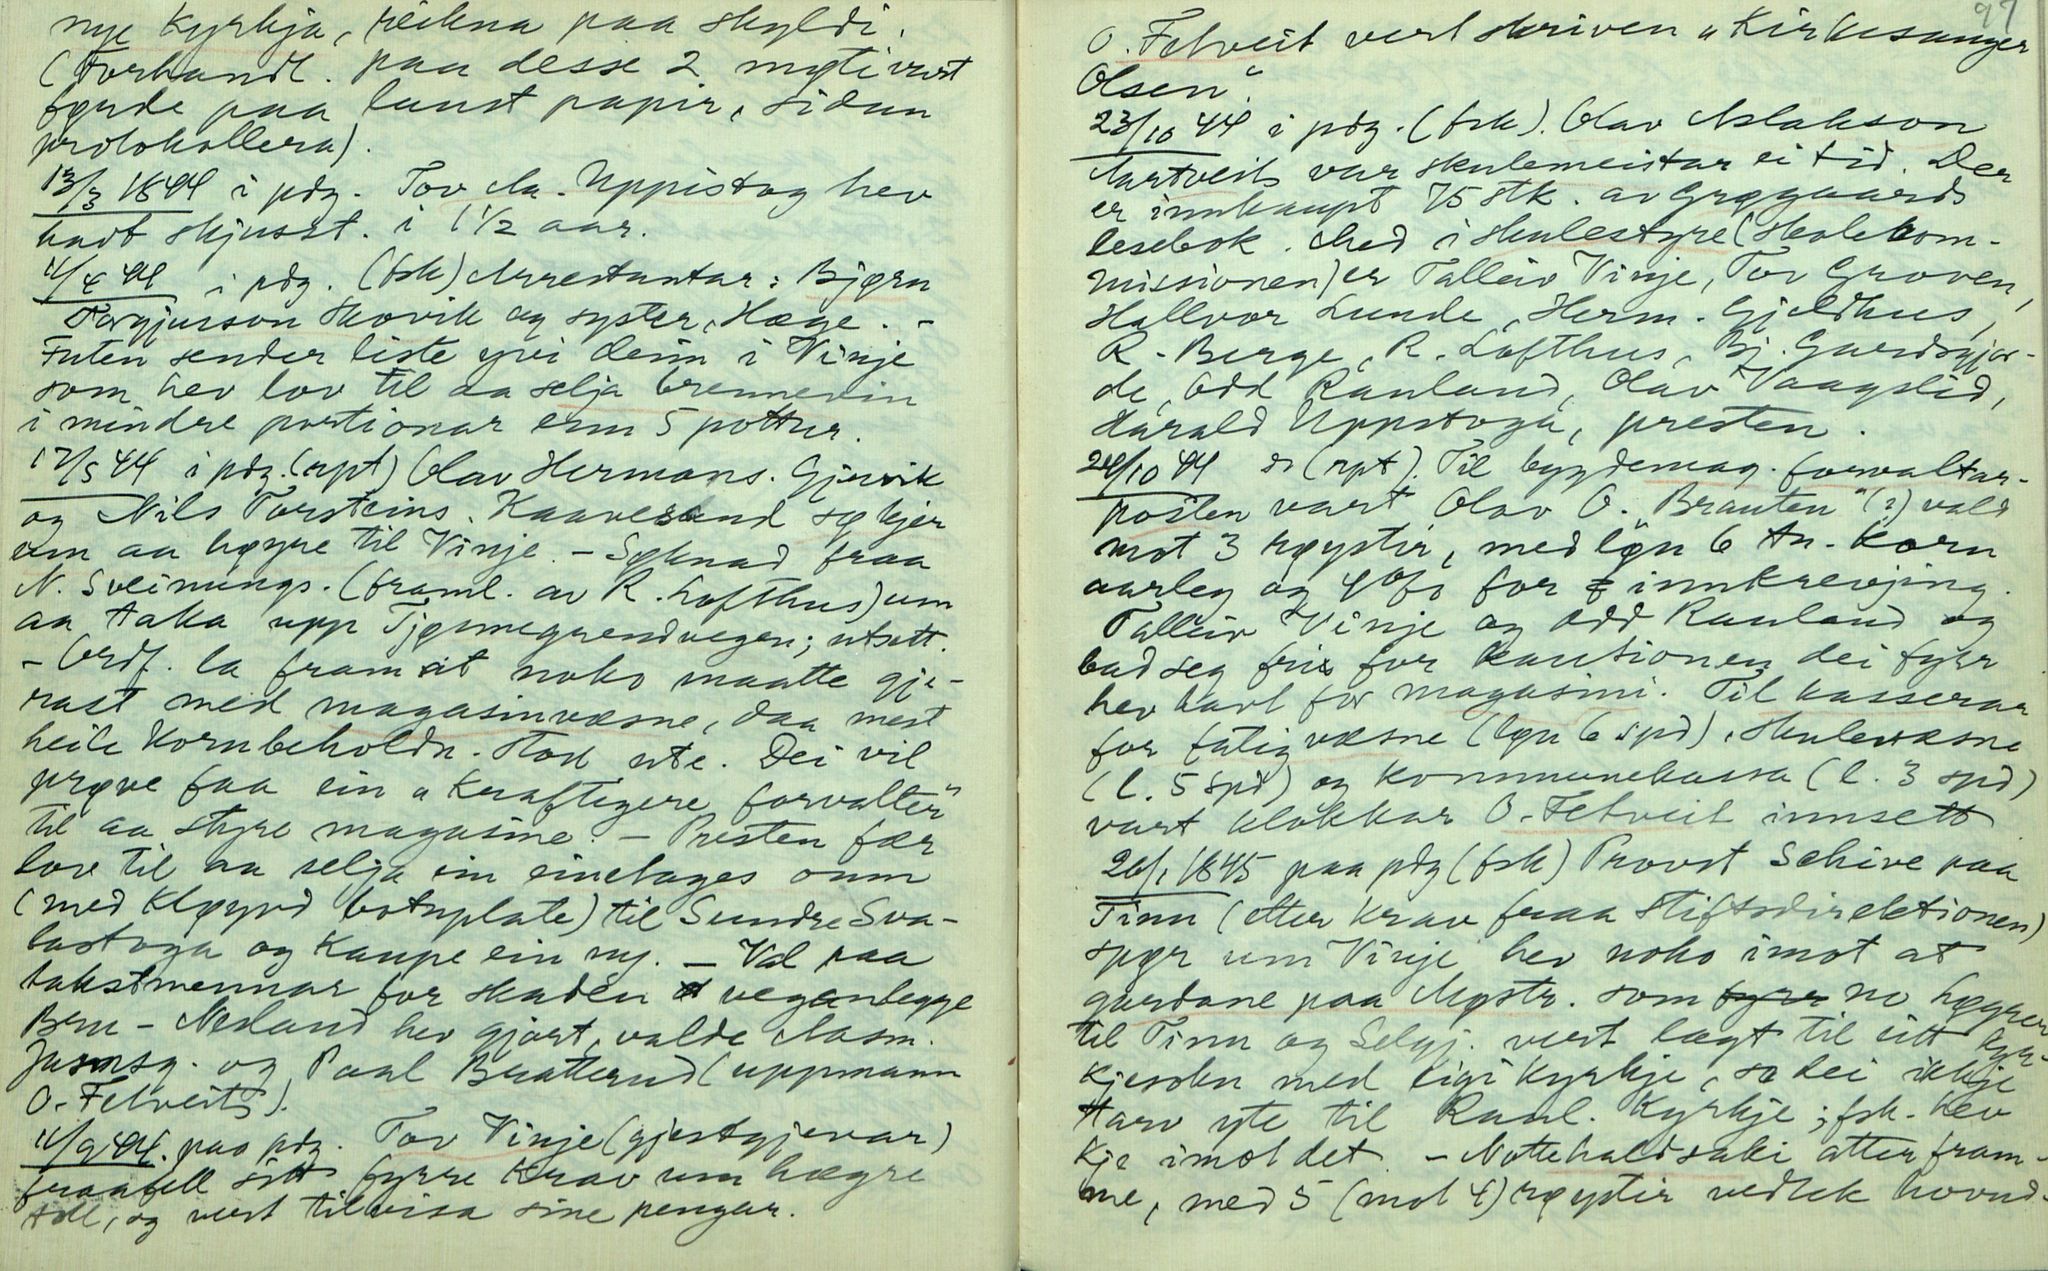 nye Kyrkja, reikna paa skyldi.
(Forhandl. paa desse 2 møti vart
førde paa laust papir, sidan
protokollera).
13/3 1844 i pdg. Tov Aa. Uppistog hev
havt skjusst. i 1 1/2 aar.
11/4 44 i pdg. (fsk) Arrestantar: Bjørn
Torgjusson Skovik og syster, Hæge. -
Futen sender liste yvi deim i Vinje
som hev lov til aa selja brennevin
i mindre portionar enn 5 pottur.
17/5 44 i pdg. (rpt) Olav Hermans. Gjuvik
og Nils Torsteins. Kaavesand søkjer
um aa høyre til Vinje. - Søknad fraa
N. Sveinungs. (framl. av R. Lofthus) um
aa taka upp Tjønnegrendvegen; utsett.
- Ordf. la fram at noko maatte gje-
rast med magasinvæsne, daa mest
heile Kornbeholdn. stod ute. Dei vil
prøve faa ein "Kraftigere forvalter"
til aa styre magasine. - Presten fær
lov til aa selja ein einetages omn
(med Kløyvd botnplate) til Sundre Sva-
lastoga og Kaupe ein ny. - Val paa
takstmennar for skaden veganlegge
Bru - Nesland hev gjort, valde Aasm.
og Paal Bratterud (uppmann
O. Fetveit).
11/9 44. paa pdg. Tov Vinje (gjestgjevar)
fraafell sitt fyrre Krav um høgre
toll, og vert tilvisa sine pengar.
97
O. Fetveit vert skriven "Kirkesanger
Olsen".
23/10 44 i pdg. (fsk). Olav Aslakson
Aartveit var skulemeistar ei tid. Der
er innkaupt 75 stk. av Grøgaards
lesebok. Med i skulestyre (Skolekom-
missionen) er Talleiv Vinje, Tor Groven,
Hallvor Lunde, Herm. Gjeldhus,
R. Berge, R. Lofthus, Bj. Gardsgjor-
de, Odd Rauland, Olav Vaagslid,
Harald Uppstoga, presten.
24/10 44 s (rpt). Til bygdemag. forvaltar-
posten vart Olav O. Brauten "(?) vald
mot 3 røystir, med løn 6 tn. Korn
aarleg og 4% for innkrevjing.
Talleiv Vinje og Odd Rauland og
bad seg fri for kautionen dei fyrr
hev havt for magasini. Til kasserar
for fatigvæsne (løn 6 spd), skulevæsne
(l. 5 spd) og Kommunekassa (l. 3 spd)
vart klokkar O. Fetveit innsett
26/1 1845 paa pdg (fsk) Provst Schive paa
Tinn (etter Krav fraa Stiftsdirektionen)
spør um Vinje hev noko imot at
gardane paa Møstr. som fyrr no høyrer
til Tinn og Selgj. vert lagt til eitt kyr-
kjesokn med eigi Kyrkje, so dei ikkje
tarv yte til Raul. Kyrkje; fsk. hev
kje imot det. - Nottehaldsaki atter fram-
me, med 5 (mot 4) røystir vedtek hovud-